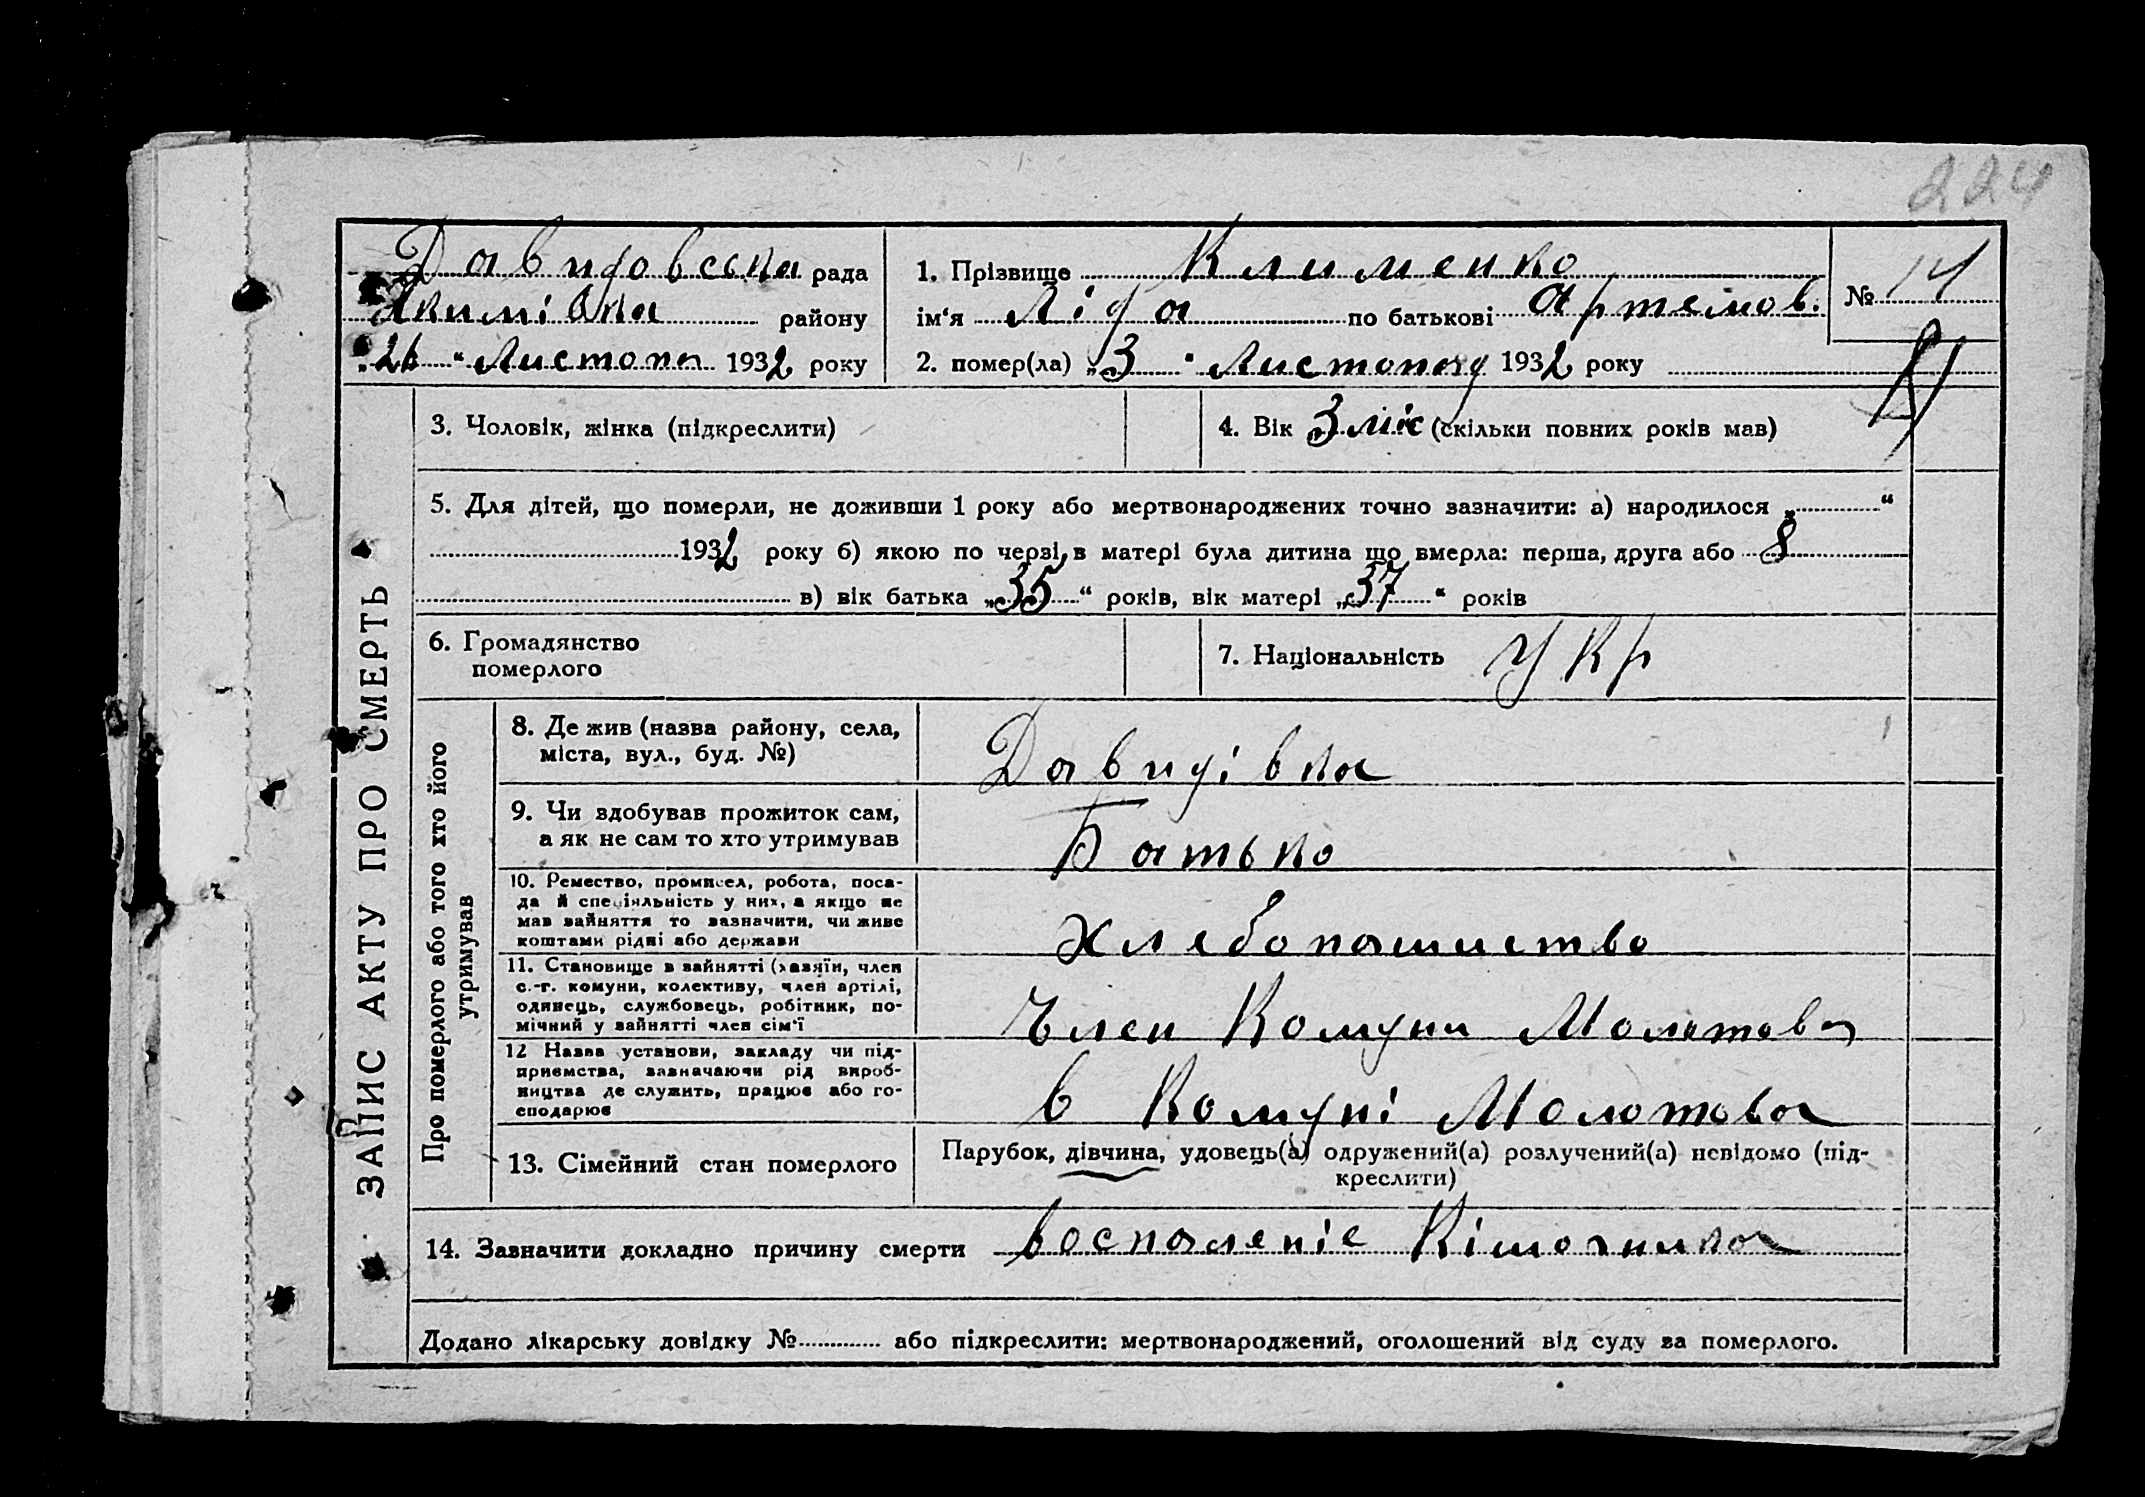 224
Давидовська рада
Якимівка району
„26“ Листопа 1932 року
1. Прізвище Клименко
ім‘я Ліда по батькові Артемов.
2. помер(ла) „3“ Листопад 1932 року
№ 14
3. Чоловік, жінка (підкреслити)
4. Вік 3 міс (скільки повних років мав)
5. Для дітей, що померли, не доживши 1 року або мертвонароджених точно зазначити: а) народилося „ “
1932 року б) якою по черзі, в матері була дитина що вмерла: перша, друга або 8
в) вік батька „35“ років, вік матері „37“ років
6. Громадянство
померлого
7. Національність Укр
ЗАПИС АКТУ ПРО СМЕРТЬ
Про померлого або того хто його
утримував
8. Де жив (назва району, села,
міста, вул., буд. №)
Давидівка
9. Чи здобував прожиток сам,
а як не сам то хто утримував
Батько
10. Ремество, промисел, робота, поса-
да й спеціяльність у них, а якщо не
мав зайняття то зазначити, чи живе
коштами рідні або держави
Хлебопашиство
11. Становище в зайнятті (хазяїн, член
с.-г. комуни, колективу, член артілі,
одинець, службовець, робітник, по-
мічний у зайнятті член сім‘ї
Член Комуни Молотова
12 Назва установи, закладу чи під-
приємства, зазначаючи рід вироб-
ництва де служить, працює або го-
сподарює
в Комуні Молотова
13. Сімейний стан померлого
Парубок, дівчина, удовець(а) одружений(а) розлучений(а) невідомо (під-
креслити)
14. Зазначити докладно причину смерти воспаленіе Кішочника
Додано лікарську довідку № або підкреслити: мертвонароджений, оголошений від суду за померлого.